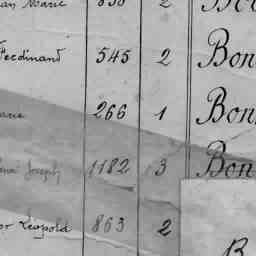 Marie 838 2
Ferdinand 545 2 Bon
266 1 Bon
Joseph 1182 3 Bon
Leopold 863 2
B